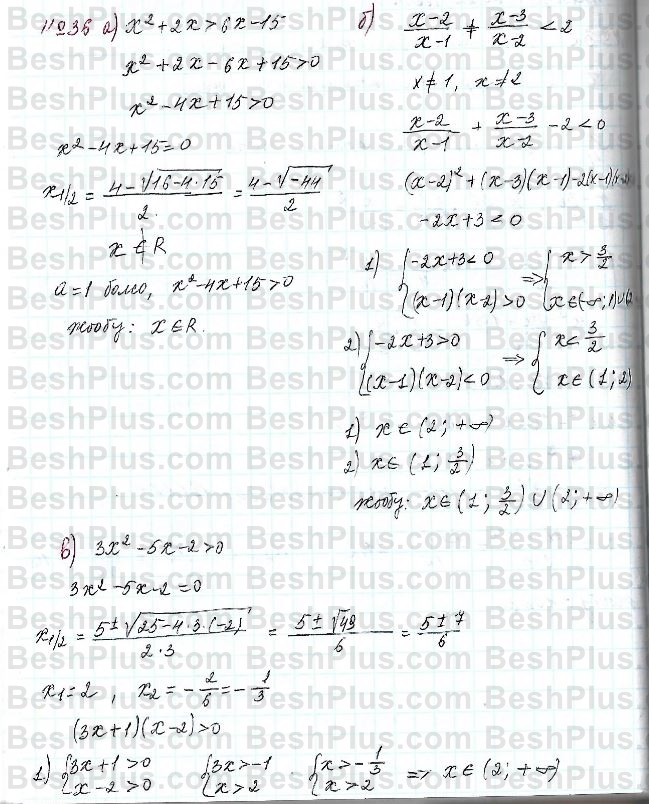 №36 а) x²+2x>6x-15
x²+2x-6x+15>0
x²-4x+15>0
x²-4x+15=0
x1/2 = (4-√(16-4·15))/2 = (4-√(-44))/2
x ∉ R
a=1 болсо, x²-4x+15>0
жообу: x∈R.
б) (x-2)/(x-1) + (x-3)/(x-2) < 2
x≠1, x≠2
(x-2)/(x-1) + (x-3)/(x-2) -2<0
(x-2)²+(x-3)(x-1)-2(x-1)(x-2)
-2x+3<0
1) {-2x+3<0 => {x>3/2
(x-1)(x-2)>0 x∈(-∞;1)∪(2
2) {-2x+3>0 => {x<3/2
(x-1)(x-2)<0 x∈(1;2)
1) x∈(2;+∞)
2) x∈(1; 3/2)
жообу: x∈(1; 3/2)∪(2;+∞)
в) 3x²-5x-2>0
3x²-5x-2=0
x1/2 = (5±√(25-4·3·(-2)))/(2·3) = (5±√49)/6 = (5±7)/6
x1=2, x2=-2/6=-1/3
(3x+1)(x-2)>0
1.) {3x+1>0 {3x>-1 {x>-1/3 => x∈(2;+∞)
x-2>0 x>2 x>2
BeshPlus.com